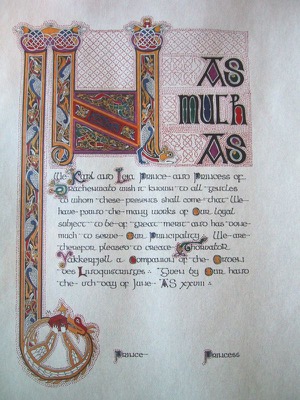 IN
AS
MUCH
AS
We Karl and Lia Prince and Princess of
Drachenwald wish it known to all gentles
to whom these presents shall come that We
have found the many works of Our loyal
subject to be of great merit and has done
much to serve Our Principality We are
therefor pleased to create
a Companion of the Orden
des Lindquistringes Given by Our hand
the day of June AS XXVIII
Prince Princess